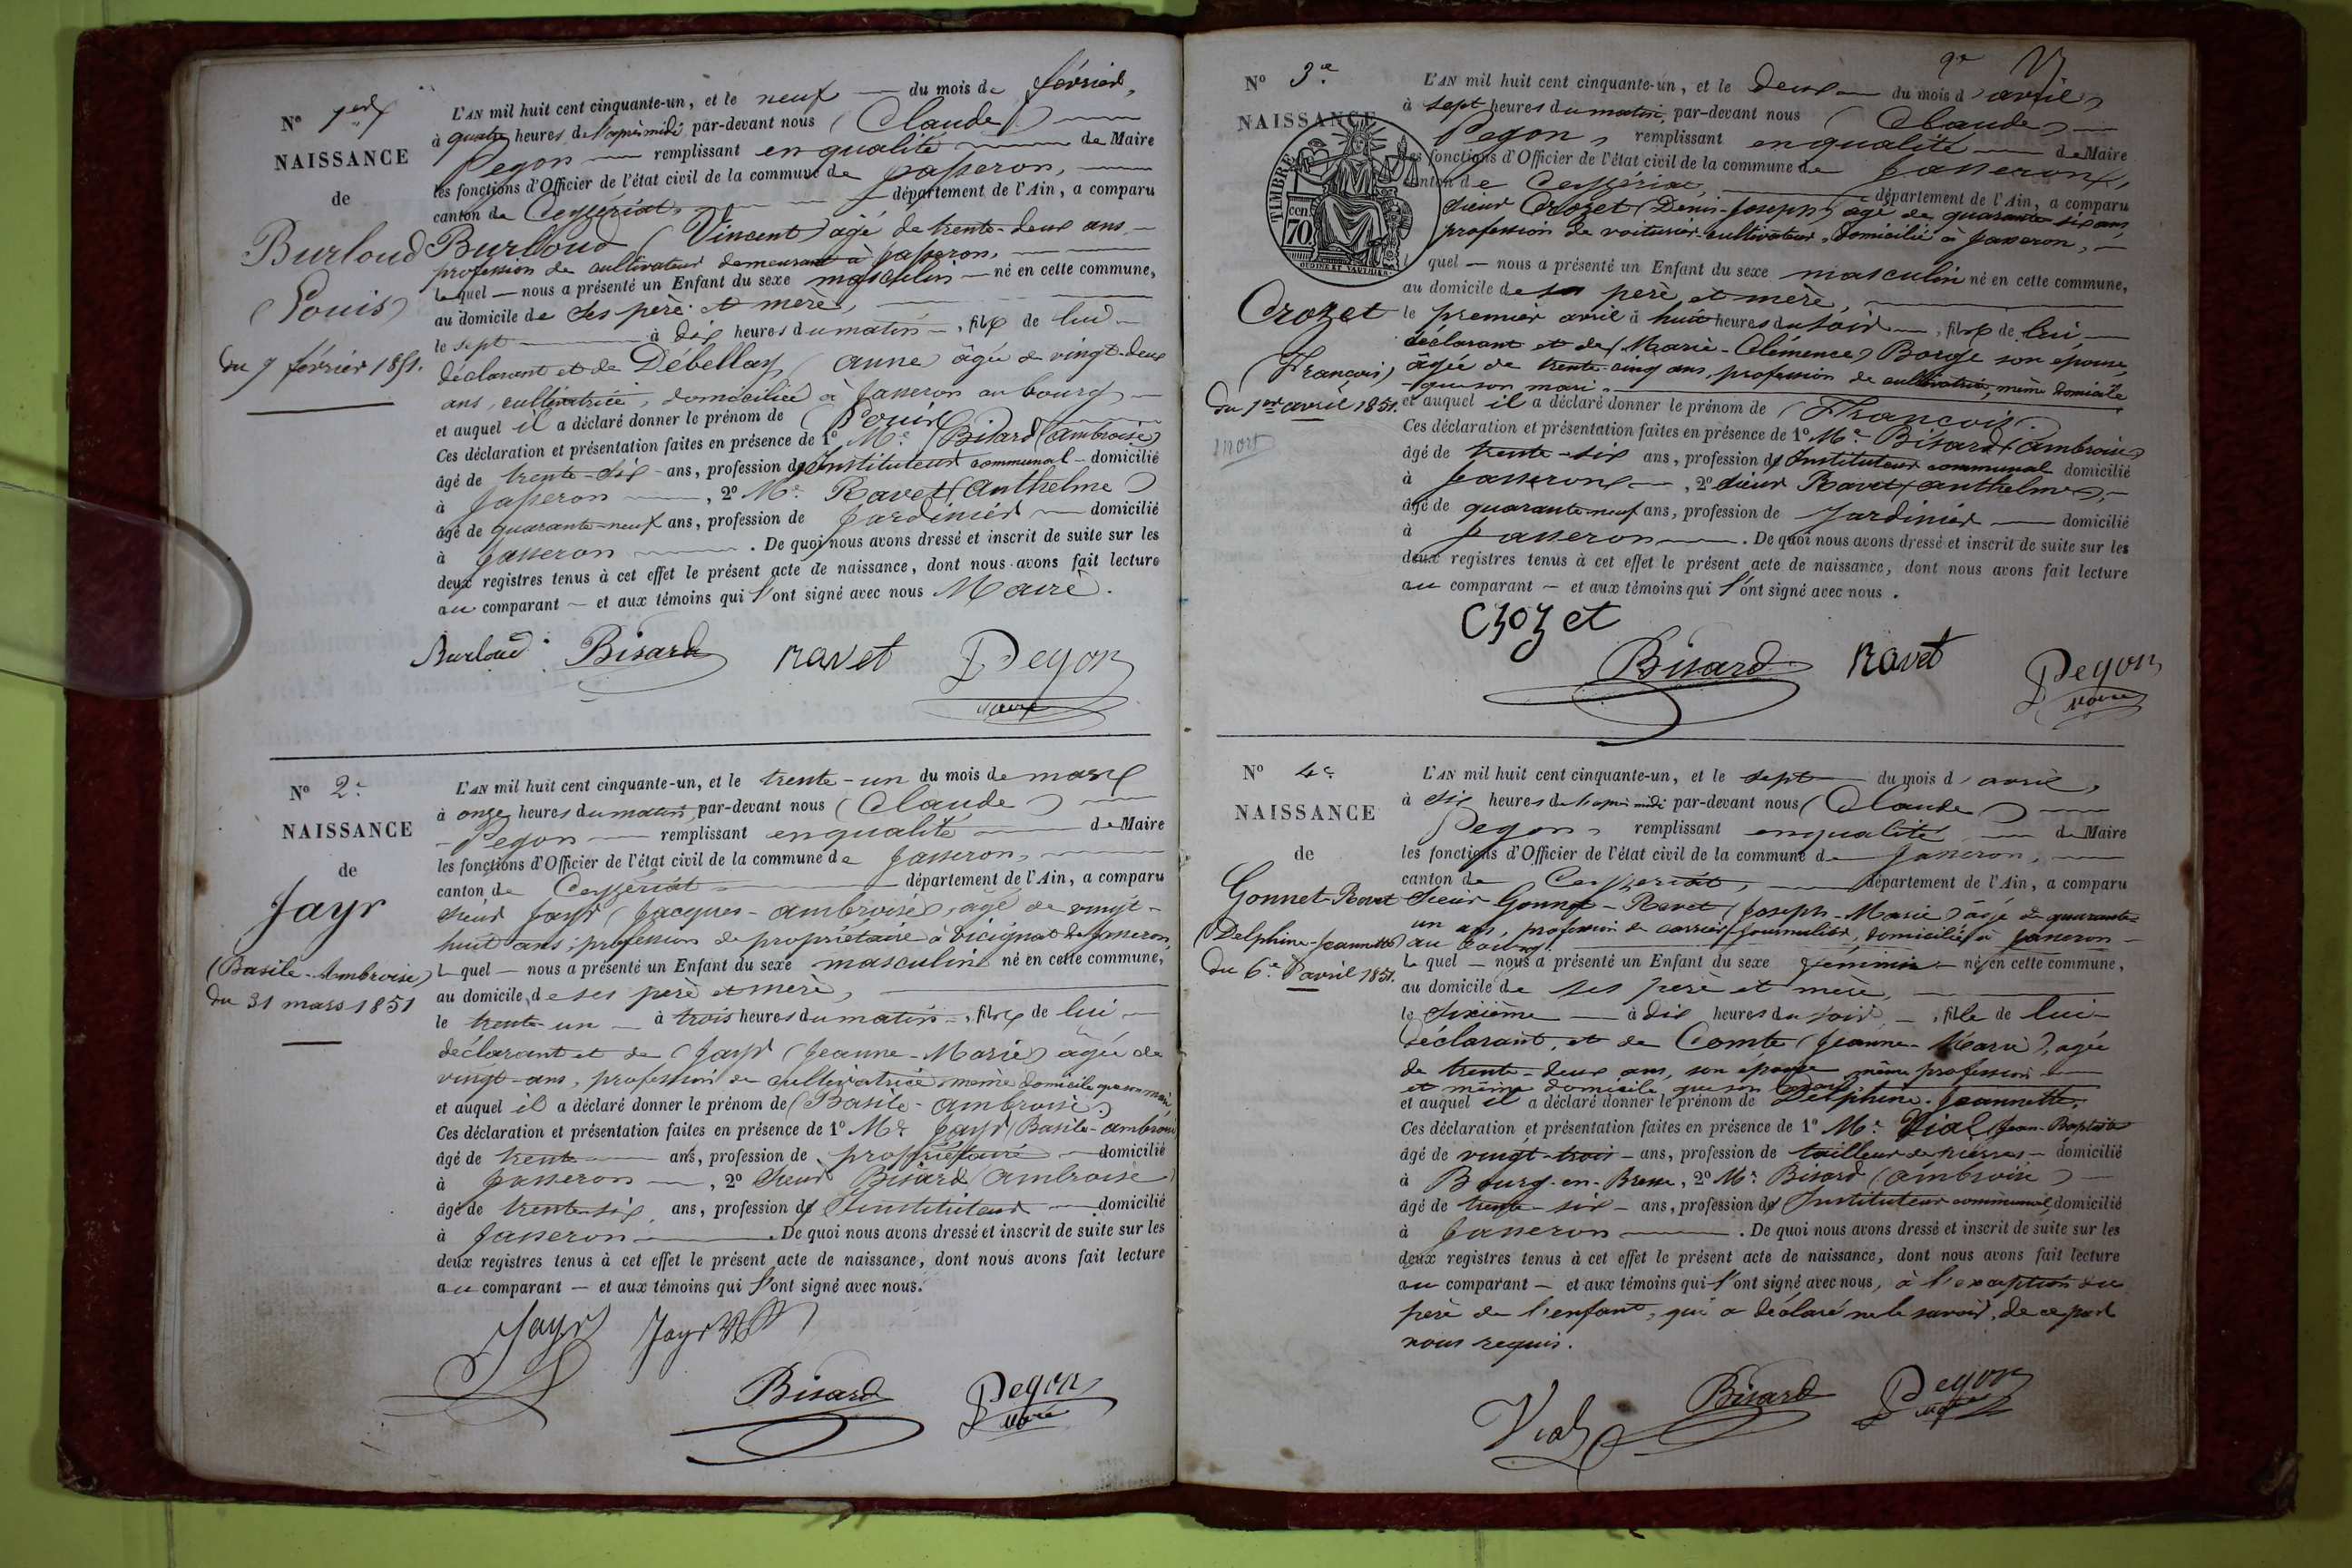 N° 1er
NAISSANCE
de
Burloud
(Louis)
du 7 février 1851.
L'AN mil huit cent cinquante-un, et le neuf du mois de février,
à quatre heures de l'après midi par-devant nous (Claude)
Pegon remplissant en qualité de Maire
les fonctions d'Officier de l'état civil de la commune de Jasseron,
canton de Ceyzeriat, département de l'Ain, a comparu
Burloud (Vincent) âgé de trente-deux ans
profession de cultivateur demeurant à Jasseron,
lequel nous a présenté un Enfant du sexe masculin né en cette commune,
au domicile de ses père et mère,
le sept à dix heures du matin, fils de lui
déclarant et de Débellay (anne) âgée de vingt-deux
ans, cultivatrice, domiciliée à Jasseron au bourg
et auquel il a déclaré donner le prénom de (Louis)
Ces déclaration et présentation faites en présence de 1° Mr. Bisard (ambroise)
âgé de trente-six ans, profession d'Instituteur communal domicilié
à Jasseron, 2° Mr. Ravet (anthelme)
âgé de quarante-neuf ans, profession de Jardinier domicilié
à Jasseron. De quoi nous avons dressé et inscrit de suite sur les
deux registres tenus à cet effet le présent acte de naissance, dont nous avons fait lecture
au comparant et aux témoins qui l'ont signé avec nous Maire.
Burloud Bisard ravet Pegon
maire
N° 2e
NAISSANCE
de
Jayr
(Basile-Ambroise)
du 31 mars 1851
L'AN mil huit cent cinquante-un, et le trente-un du mois de mars
à onze heures du matin, par-devant nous (Claude)
Pegon remplissant en qualité de Maire
les fonctions d'Officier de l'état civil de la commune de Jasseron,
canton de Ceyzeriat département de l'Ain, a comparu
sieur Jayr (Jacques-ambroise), âgé de vingt-
huit ans, profession de propriétaire à Vicignat de Jasseron,
lequel nous a présenté un Enfant du sexe masculin né en cette commune,
au domicile de ses père et mère,
le trente-un à trois heures du matin, fils de lui
déclarant et de (Jayr (Jeanne-Marie) agée de
vingt-ans, profession de cultivatrice même domicile que son mari
et auquel il a déclaré donner le prénom de (Basile-ambroise.)
Ces déclaration et présentation faites en présence de 1° Mr. Jayr (Basile-ambroise
âgé de trente ans, profession de propriétaire domicilié
à Jasseron, 2° Sieur Bisard (ambroise)
âgé de trente-six ans, profession d'Instituteur domicilié
à Jasseron. De quoi nous avons dressé et inscrit de suite sur les
deux registres tenus à cet effet le présent acte de naissance, dont nous avons fait lecture
au comparant et aux témoins qui l'ont signé avec nous.
Jayr Jayr
Bisard Pegon
maire
N° 3e
NAISSANCE
TIMBRE
cen.
70
OUDINE ET VAUTHIER
Crozet
(François)
du 1er avril 1851.
mort
L'AN mil huit cent cinquante-un, et le deux du mois d'avril
à sept heures du matin, par-devant nous (Claude)
Pegon, remplissant en qualité de Maire
les fonctions d'Officier de l'état civil de la commune de Jasseron,
canton de Ceyzériat, département de l'Ain, a comparu
sieur Crozet (Denis-Joseph) âgé de quarante-six ans
profession de voiturier-cultivateur, domicilié à Jasseron,
lequel nous a présenté un Enfant du sexe masculin né en cette commune,
au domicile de ses père et mère,
le premier avril à huit heures du soir, fils de lui,
déclarant et de (Marie-Clémence) Borge son épouse,
âgée de trente-cinq ans, profession de cultivatrice, même domicile
que son mari.
et auquel il a déclaré donner le prénom de (François.
Ces déclaration et présentation faites en présence de 1° Mr. Bisard (ambroise)
âgé de trente-six ans, profession d'Instituteur communal domicilié
à Jasseron, 2° sieur Ravet (anthelme),
âgé de quarante-neuf ans, profession de Jardinier domicilié
à Jasseron. De quoi nous avons dressé et inscrit de suite sur les
deux registres tenus à cet effet le présent acte de naissance, dont nous avons fait lecture
au comparant et aux témoins qui l'ont signé avec nous.
Crozet
Bisard ravet Pegon
maire
N° 4e
NAISSANCE
de
Gonnet-Ravet
(Delphine-Jeannette)
du 6e avril 1851.
L'AN mil huit cent cinquante-un, et le sept du mois d'avril,
à six heures de l'après midi par-devant nous (Claude)
Pegon, remplissant en qualité de Maire
les fonctions d'Officier de l'état civil de la commune de Jasseron,
canton de Ceyzeriat, département de l'Ain, a comparu
Sieur Gonnet-Ravet (Joseph-Marie) âgé de quarante-
un ans, profession de carrier-journalier, domicilié à Jasseron
au bourg.
lequel nous a présenté un Enfant du sexe féminin né en cette commune,
au domicile de ses père et mère,
le sixième à dix heures du soir, fille de lui
déclarant, et de Comte (Jeanne-Marie), agée
de trente-deux ans, son épouse même profession
et même domicile que son
et auquel il a déclaré donner le prénom de Delphine-Jeannette.
Ces déclaration et présentation faites en présence de 1° Mr. Vial (Jean-Baptiste
âgé de vingt-trois ans, profession de tailleur de pierres domicilié
à Bourg-en-Bresse, 2° Mr. Bisard (ambroise)
âgé de trente-six ans, profession d'Instituteur communal, domicilié
à Jasseron. De quoi nous avons dressé et inscrit de suite sur les
deux registres tenus à cet effet le présent acte de naissance, dont nous avons fait lecture
au comparant et aux témoins qui l'ont signé avec nous, à l'exception du
père de l'enfant, qui a déclaré ne le savoir, de ce par
nous requis.
Vial Bisard Pegon